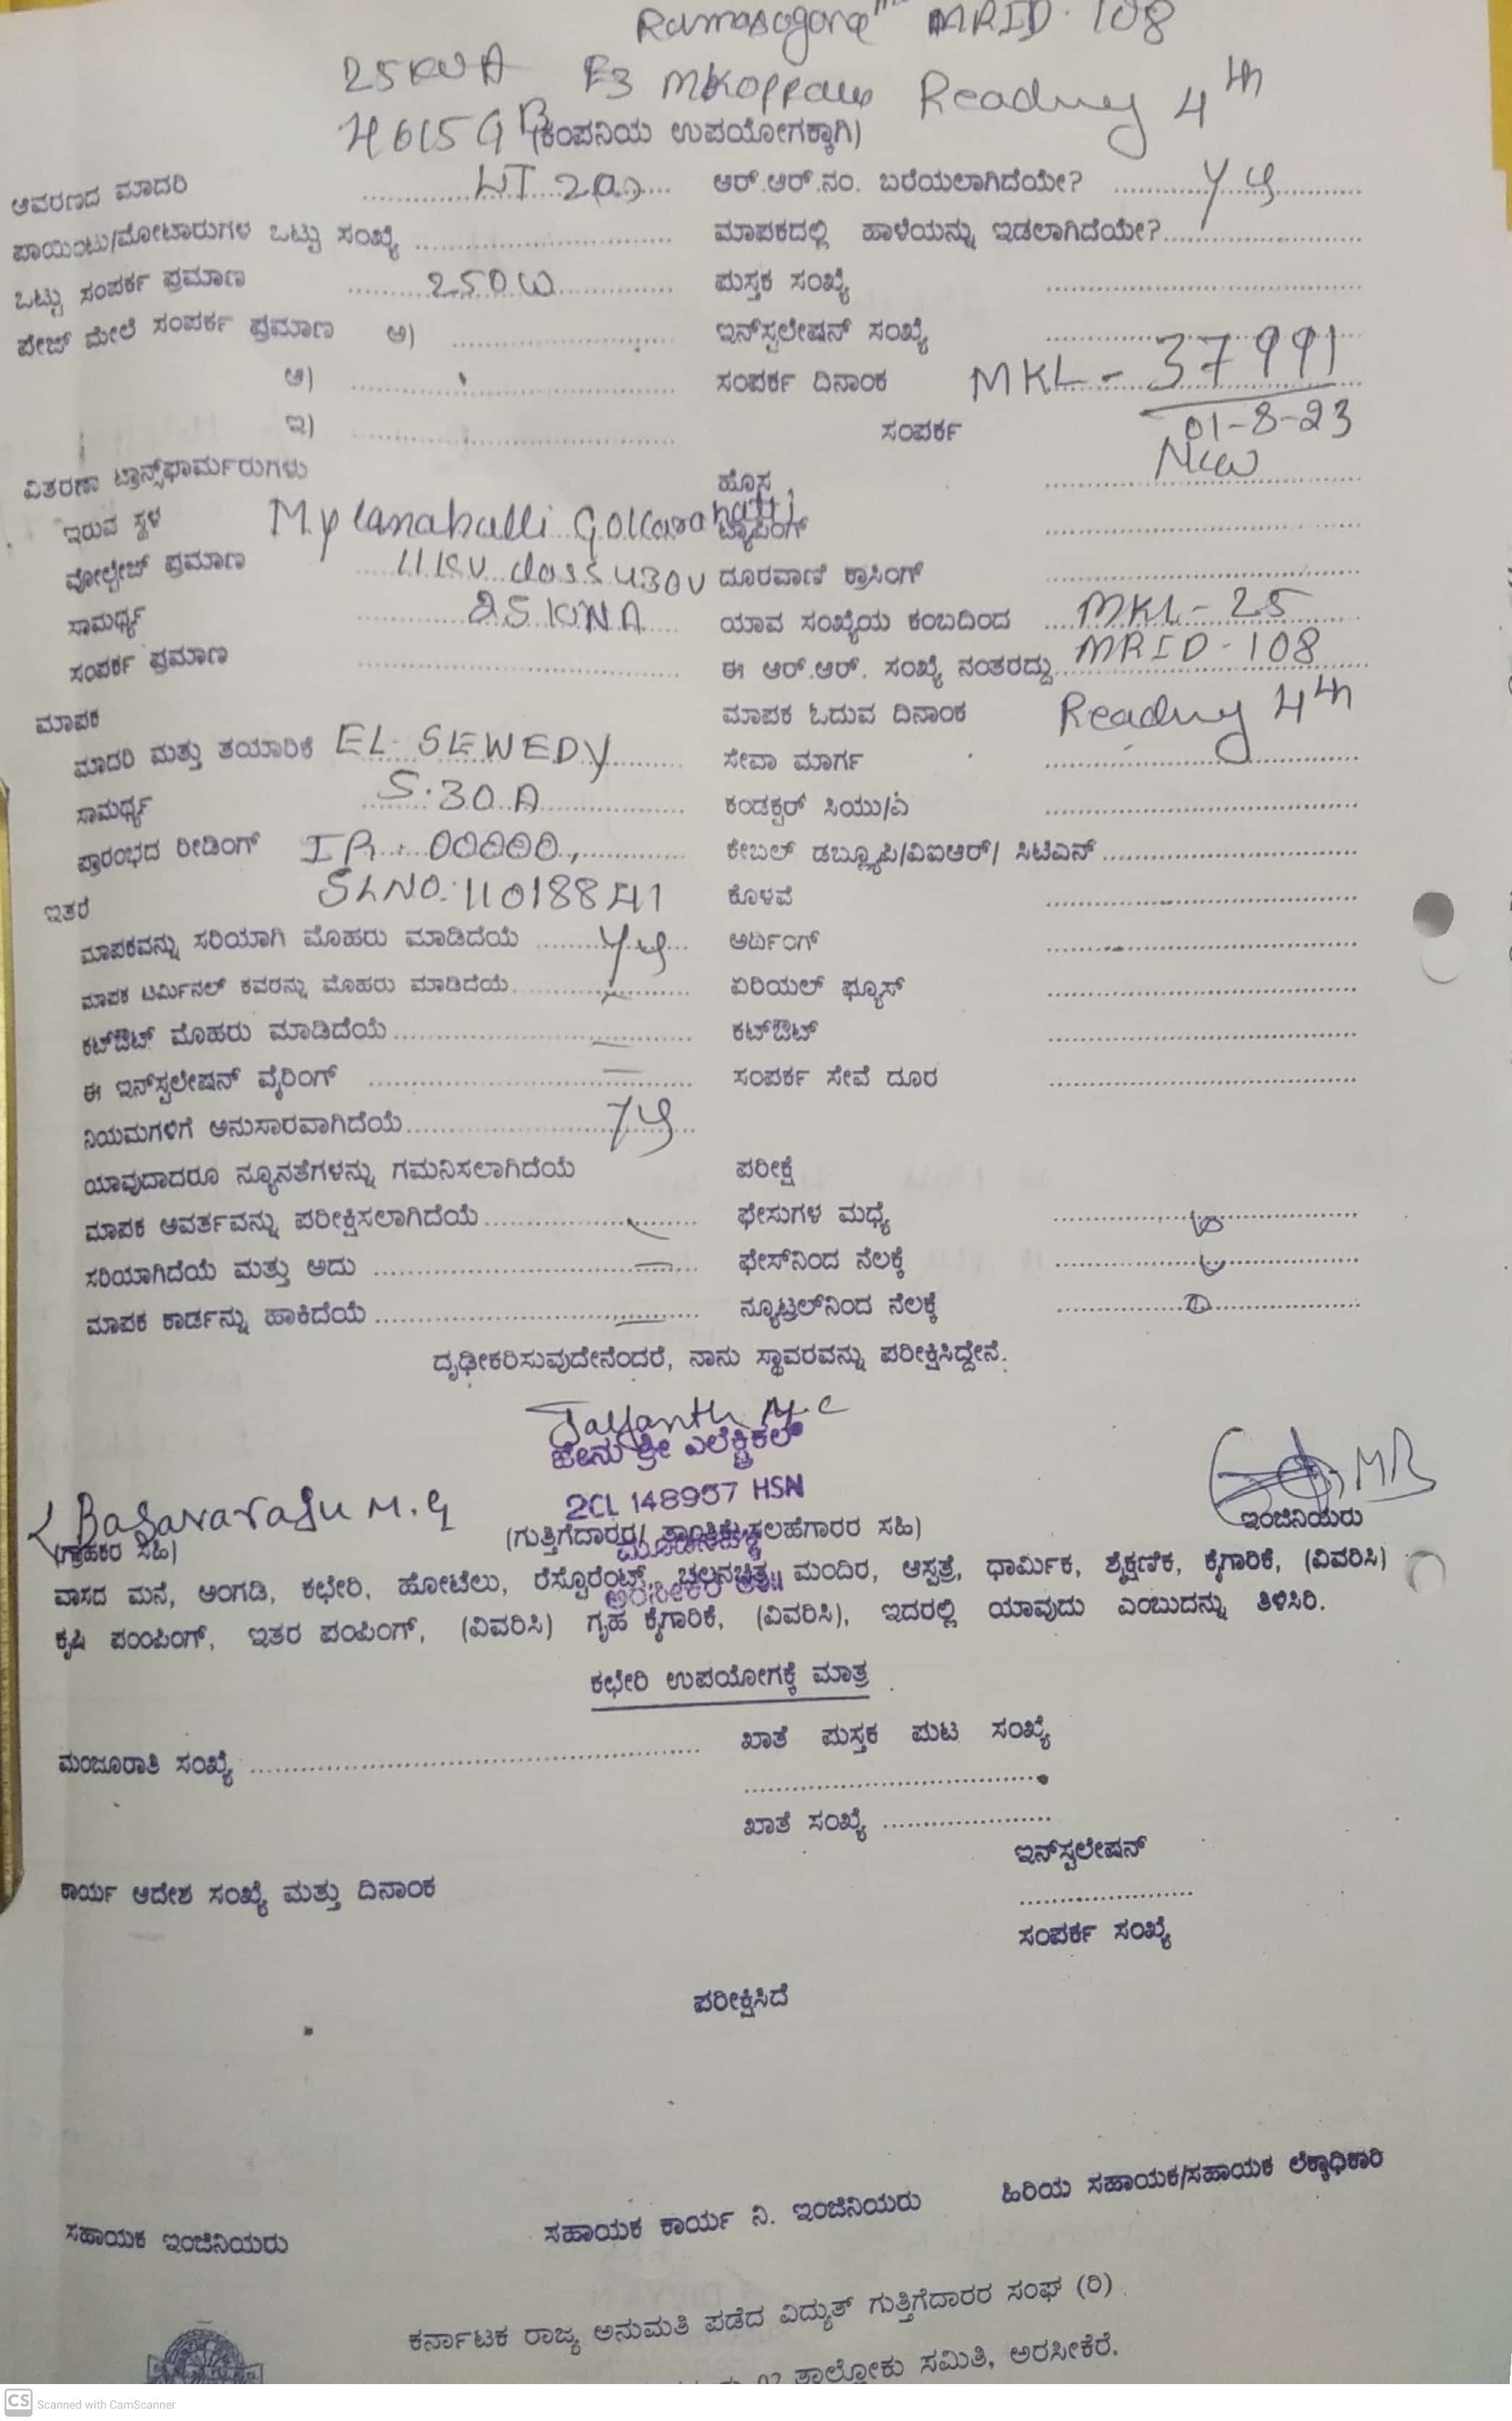 MRID- 108
25KVA F3 Reading 4th
(ಕಂಪನಿಯ ಉಪಯೋಗಕ್ಕಾಗಿ)
ಆವರಣದ ಮಾದರಿ ಆರ್.ಆರ್.ನಂ. ಬರೆಯಲಾಗಿದೆಯೇ?
ಪಾಯಿಂಟು/ಮೋಟಾರುಗಳ ಒಟ್ಟು ಸಂಖ್ಯೆ ಮಾಪಕದಲ್ಲಿ ಹಾಳೆಯನ್ನು ಇಡಲಾಗಿದೆಯೇ?
ಒಟ್ಟು ಸಂಪರ್ಕ ಪ್ರಮಾಣ 250W ಪುಸ್ತಕ ಸಂಖ್ಯೆ
ಪೇಜ್ ಮೇಲೆ ಸಂಪರ್ಕ ಪ್ರಮಾಣ ಅ) ಇನ್‌ಸ್ಟಲೇಷನ್ ಸಂಖ್ಯೆ
ಆ) ಸಂಪರ್ಕ ದಿನಾಂಕ MKL - 37991
ಇ) ಸಂಪರ್ಕ 01-8-23
ವಿತರಣಾ ಟ್ರಾನ್ಸ್‌ಫಾರ್ಮರುಗಳು ಹೊಸ New
ಇರುವ ಸ್ಥಳ Mylanahalli Gollarahatti ಟ್ಯಾಪಿಂಗ್
ವೋಲ್ಟೇಜ್ ಪ್ರಮಾಣ 11KV class 430V ದೂರವಾಣಿ ಕ್ರಾಸಿಂಗ್
ಸಾಮರ್ಥ್ಯ 25 KVA ಯಾವ ಸಂಖ್ಯೆಯ ಕಂಬದಿಂದ MKL - 25
ಸಂಪರ್ಕ ಪ್ರಮಾಣ ಈ ಆರ್.ಆರ್. ಸಂಖ್ಯೆ ನಂತರದ್ದು MRID - 108
ಮಾಪಕ ಮಾಪಕ ಓದುವ ದಿನಾಂಕ Reading 4th
ಮಾದರಿ ಮತ್ತು ತಯಾರಿಕೆ EL- SEWEDY ಸೇವಾ ಮಾರ್ಗ
ಸಾಮರ್ಥ್ಯ 5-30 A ಕಂಡಕ್ಟರ್ ಸಿಯು/ಎ
ಪ್ರಾರಂಭದ ರೀಡಿಂಗ್ IR: 00000, ಕೇಬಲ್ ಡಬ್ಲ್ಯೂಪಿ/ವಿಐಆರ್/ ಸಿಟಿಎಸ್
ಇತರೆ SLNO: ಕೊಳವೆ
ಮಾಪಕವನ್ನು ಸರಿಯಾಗಿ ಮೊಹರು ಮಾಡಿದೆಯೆ ಅರ್ಥಿಂಗ್
ಮಾಪಕ ಟರ್ಮಿನಲ್ ಕವರನ್ನು ಮೊಹರು ಮಾಡಿದೆಯೆ ಏರಿಯಲ್ ಫ್ಯೂಸ್
ಕಟ್‌ಔಟ್ ಮೊಹರು ಮಾಡಿದೆಯೆ ಕಟ್‌ಔಟ್
ಈ ಇನ್‌ಸ್ಟಲೇಷನ್ ವೈರಿಂಗ್ ಸಂಪರ್ಕ ಸೇವೆ ದೂರ
ನಿಯಮಗಳಿಗೆ ಅನುಸಾರವಾಗಿದೆಯೆ
ಯಾವುದಾದರೂ ನ್ಯೂನತೆಗಳನ್ನು ಗಮನಿಸಲಾಗಿದೆಯೆ ಪರೀಕ್ಷೆ
ಮಾಪಕ ಆವರ್ತವನ್ನು ಪರೀಕ್ಷಿಸಲಾಗಿದೆಯೆ ಫೇಸುಗಳ ಮಧ್ಯೆ
ಸರಿಯಾಗಿದೆಯೆ ಮತ್ತು ಅದು ಫೇಸ್‌ನಿಂದ ನೆಲಕ್ಕೆ
ಮಾಪಕ ಕಾರ್ಡನ್ನು ಹಾಕಿದೆಯೆ ನ್ಯೂಟ್ರಲ್‌ನಿಂದ ನೆಲಕ್ಕೆ
ದೃಢೀಕರಿಸುವುದೇನೆಂದರೆ, ನಾನು ಸ್ಥಾವರವನ್ನು ಪರೀಕ್ಷಿಸಿದ್ದೇನೆ.
Jayanth M.C
ಶ್ರೀ ಎಲೆಕ್ಟ್ರಿಕಲ್
2CL 148957 HSN
Basavaraju M.G
(ಗ್ರಾಹಕರ ಸಹಿ) (ಗುತ್ತಿಗೆದಾರರ/ ತಾಂತ್ರಿಕ ಸಲಹೆಗಾರರ ಸಹಿ) ಇಂಜಿನಿಯರು
ವಾಸದ ಮನೆ, ಅಂಗಡಿ, ಕಛೇರಿ, ಹೋಟೆಲು, ರೆಸ್ಟೊರೆಂಟ್ಸ್, ಚಲನಚಿತ್ರ, ಮಂದಿರ, ಆಸ್ಪತ್ರೆ, ಧಾರ್ಮಿಕ, ಶೈಕ್ಷಣಿಕ, ಕೈಗಾರಿಕೆ, (ವಿವರಿಸಿ)
ಕೃಷಿ ಪಂಂಪಿಂಗ್, ಇತರ ಪಂಪಿಂಗ್, (ವಿವರಿಸಿ) ಗೃಹ ಕೈಗಾರಿಕೆ, (ವಿವರಿಸಿ), ಇದರಲ್ಲಿ ಯಾವುದು ಎಂಬುದನ್ನು ತಿಳಿಸಿರಿ.
ಕಛೇರಿ ಉಪಯೋಗಕ್ಕೆ ಮಾತ್ರ
ಖಾತೆ ಪುಸ್ತಕ ಪುಟ ಸಂಖ್ಯೆ
ಮಂಜೂರಾತಿ ಸಂಖ್ಯೆ
ಖಾತೆ ಸಂಖ್ಯೆ
ಇನ್‌ಸ್ಟಲೇಷನ್
ಕಾರ್ಯ ಆದೇಶ ಸಂಖ್ಯೆ ಮತ್ತು ದಿನಾಂಕ
ಸಂಪರ್ಕ ಸಂಖ್ಯೆ
ಪರೀಕ್ಷಿಸಿದೆ
ಸಹಾಯಕ ಇಂಜಿನಿಯರು ಸಹಾಯಕ ಕಾರ್ಯ ನಿ. ಇಂಜಿನಿಯರು ಹಿರಿಯ ಸಹಾಯಕ/ಸಹಾಯಕ ಲೆಕ್ಕಾಧಿಕಾರಿ
ಕರ್ನಾಟಕ ರಾಜ್ಯ ಅನುಮತಿ ಪಡೆದ ವಿದ್ಯುತ್ ಗುತ್ತಿಗೆದಾರರ ಸಂಘ (ರಿ)
ತಾಲ್ಲೋಕು ಸಮಿತಿ, ಅರಸೀಕೆರೆ.
CS Scanned with CamScanner